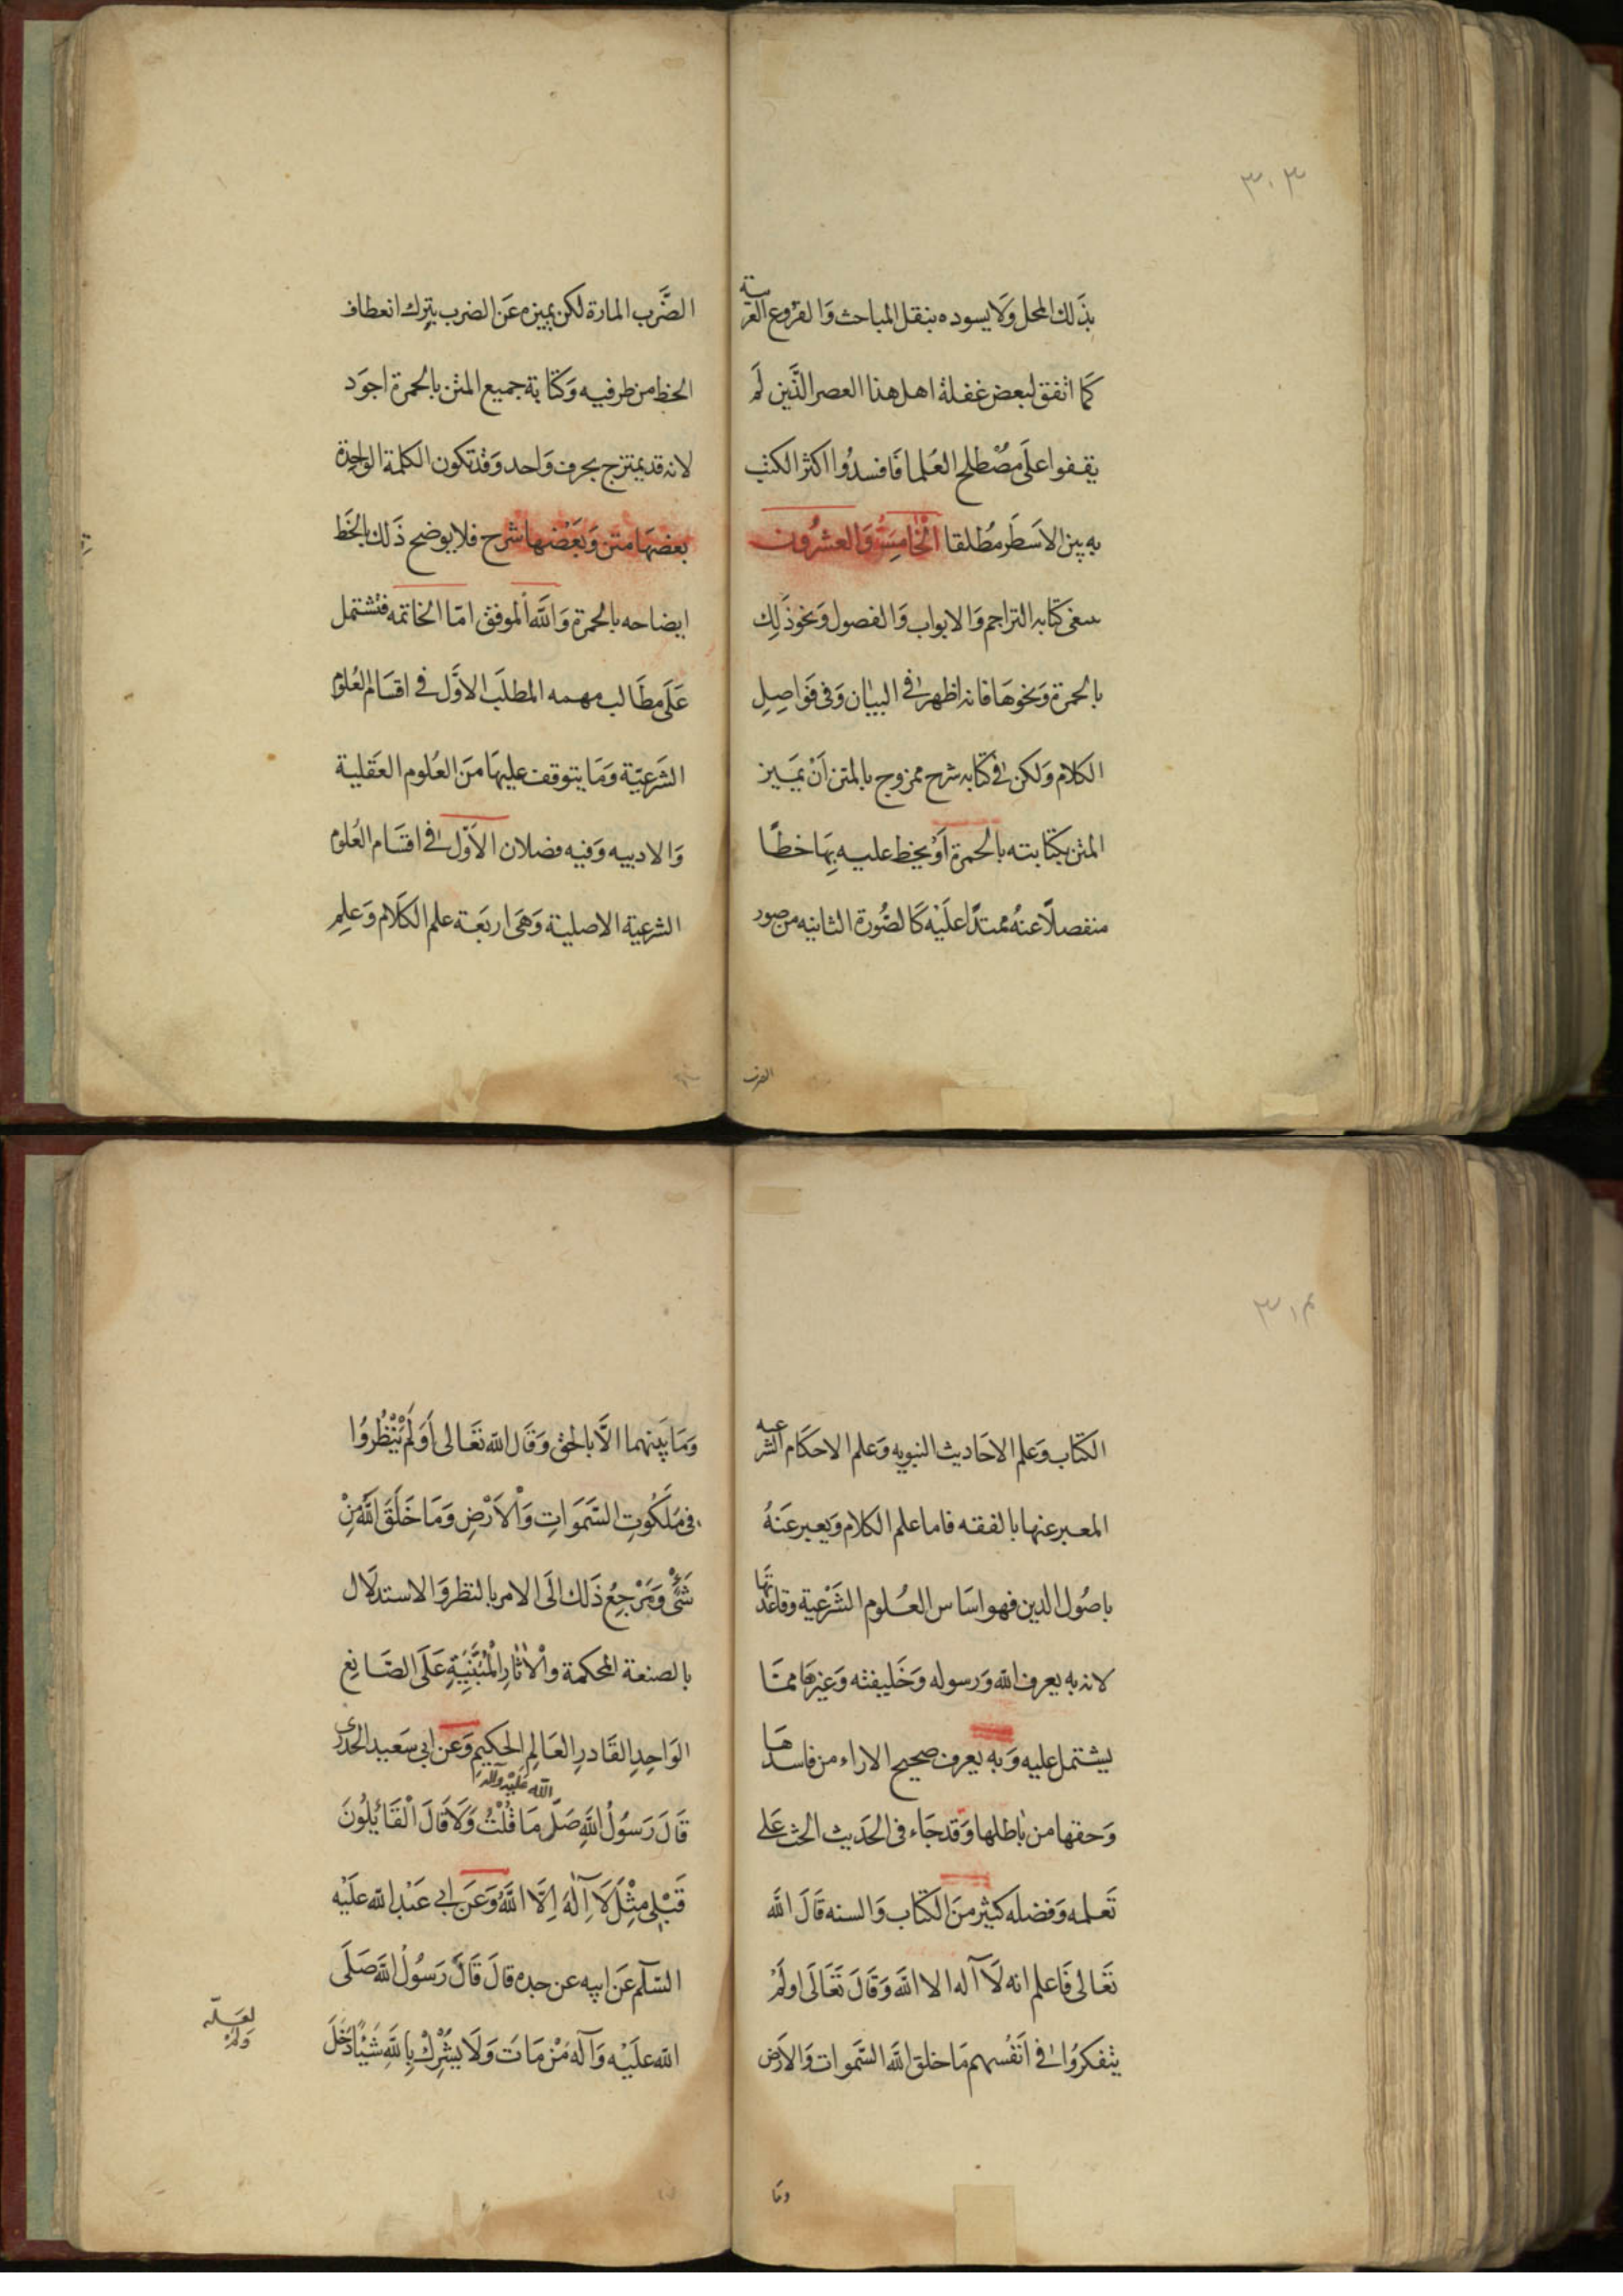 ٣٠٣
بذَلك المحل وَلا يسوده بنقل المباحث وَالفروع الغريبة
كما اتفق لبعض غفلة اهل هذا العصر الذَّين لَم
يقفوا على مصْطلح العُلما فافسدُوا اكثر الكتب
به بين الاسَطر مُطلقا الْخامِسَةُ وَالعشرُون
ينبغى كتابه التراجم وَالابواب وَالفصول وَنحو ذَلِك
بالحمرة وَنحوهَا فانه اظهر فى البيان وَفى فَوَاصِلِ
الكلام وَلكن فى كتابه شرح ممزوج بالمتن اَنْ يَميز
المتن بكتابته بالحُمرة اَوْ يخط عليه بِهَا خطًا
منفصلًا عنهُ ممتدًا علَيْه كَالصُّورة الثانيه من صور
الضرب
الضَّرب المارة لكن يميزه عَن الضرب بترك انعطاف
الخط من طرفيه وَكتابة جميع المتن بالحمرة اجوَد
لانه قد يمتزج بحرف وَاحد وَقد تكون الكلمة الواحِدَة
بعضهَا متن وَبَعْضهَا شرح فلا يوضح ذَلك بالخَط
ايضاحه بالحمرة وَاللَّه الموفق امّا الخاتمه فتشتمل
عَلَى مطَالب مهمه المطلَب الاوَّل فى اقسَام العُلوم
الشَرعيّة وَمَا يتوقف عليهَا منَ العُلوم العَقلية
وَالادبيه وَفيه فصلان الاوّل فى اقسَام العُلوم
الشرعية الاصلية وَهىَ اربَعة علم الكَلام وَعلمِ
الكتَاب وَعلم الاحَاديث النبويه وَعلم الاحكام الشرعيه
المعبر عنها بالفقه فاما علم الكلام وَيعبر عَنهُ
باصُول الدين فهو اسَاس العُلوم الشَرْعية وقاعدتها
لانه به يعرف اللّه وَرسوله وَخَليفته وَغيرهَا ممّا
يشتمل عليه وَبه يعرف صحيح الاراء من فاسدها
وَحقها من باطلها وَقد جَاء فى الحَديث الحث عَلى
تَعلمه وَفضله كثير منَ الكتَاب وَالسنه قَالَ اللَّه
تعَالى فَاعلم انه لَا اله الا اللَّه وَقَالَ تَعَالَى اولَمْ
يتفكرُوا فى اَنفُسهم مَا خلق اللَّه السَّموات وَالارض
وما
وَمَا بَينهما الاَّ بالحق وَقَال اللّه تعَالى اَوَلَمْ يَنْظُرُوا
فى مَلَكُوتِ السَّمَوَاتِ وَالْاَرْضِ وَمَا خَلَقَ اللَّهُ مِنْ
شَىْءٍ وَمَرْجِعُ ذَلك الَى الامر بالنظر وَالاستدلَال
بالصنعة المحكمة والْاثَارِ الْمُبَيَّنِيَّةِ عَلَى الصَّانِع
الوَاحِدِ القَادرِ العَالِمِ الحَكيمِ وَعن ابى سَعيد الخدرى
قَالَ رَسُولُ اللَّهِ صَلَّى اللّه عَلَيْه وَآلِهِ مَا قُلْتُ وَلَا قَالَ الْقَائِلُونَ
قَبْلِى مِثْلَ لَا اِلَهَ اِلَّا اللَّهُ وَعَن ابى عَبْدِ اللّه علَيْه
السّلم عَن ابيه عن جده قالَ قَالَ رَسُولُ اللَّهِ صَلَى
اللّه علَيْه وَآله مَنْ مَاتَ وَلَا يشْرِكْ بِاللَّهِ شَيْئًا دَخَلَ
لعَلّه
وَلَمْ